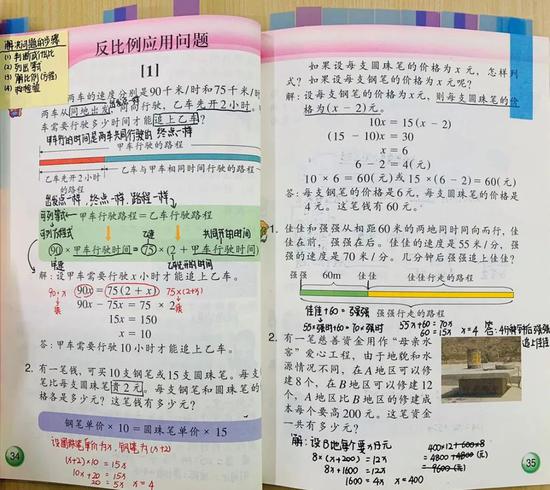 解决问题的步骤
(1) 判断成什么比
(2) 列出算式
(3) 解比例(方程)
(4) 检验
反比例应用问题
[1]
两车的速度分别是90千米/时和75千米/时
两车从同地出发同向而行,乙车先开2小时。
车需要行驶多少小时才能追上乙车?
出发点一样
甲车行的时间是两车共同行驶的 终点一样
甲车行驶的路程
乙车先开2小时
的路程
乙车与甲车相同时间行驶的路程
出发点一样,终点一样,路程一样
可列算式
甲车行驶路程=乙车行驶路程
可列方程式
共同开的时间
90×甲车行驶时间=75×(2+甲车行驶时间)
甲速
乙速
解:设甲车需要行驶x小时才能追上乙车。
90x=75(2+x)
90x-75x=75×2
15x=150
x=10
90×x
75×(2+x)
答:甲车行驶10小时才能追上乙车。
2. 有一笔钱,可买10支钢笔或15支圆珠笔。每支
笔比每支圆珠笔贵2元。每支钢笔和圆珠笔的
格各是多少元?这笔钱有多少元?
钢笔单价×10=圆珠笔单价×15
设圆珠笔单价为x,钢笔为(x+2)
(x+2)×10=15x
10x+20=15x
20=5x x=4
34
如果设每支圆珠笔的价格为x元,怎样列
式?如果设每支钢笔的价格为x元呢?
解:设每支钢笔的价格为x元,则每支圆珠笔的价
格为(x-2)元。
10x=15(x-2)
(15-10)x=30
x=6
6-2=4(元)
10×6=60(元)或15×(6-2)=60(元)
答:每支钢笔的价格是6元,每支圆珠笔的价格是
4元。这笔钱有60元。
1. 佳佳和强强从相距60米的两地同时同向而行,佳
佳在前,强强在后。佳佳的速度是55米/分,强
强的速度是70米/分。几分钟后强强追上佳佳?
强强 60m 佳佳 佳佳行走的路程
强强行走的路程
佳佳+60=强强
55×强时+60=70×强时
55x+60=70x
60=15x x=4
答:4分钟后强强
追上佳佳
2. 有一笔慈善资金用作“母亲水
窖”爱心工程,由于地貌和水
源情况不同,在A地区可以修
建8个,在B地区可以修建12
个,A地区比B地区的修建成
本每个要高200元。这笔资金
一共有多少元?
解:设B地每个要x元
8×(x+200)=12x
8x+1600=12x
1600=4x x=400
400×12
=4800(元)
35